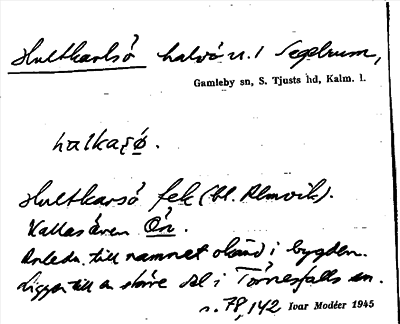 Hultkarlsö halvö u. l Segelrum,
Gamleby sn, S. Tjusts hd, Kalm. l.
halkaṣø.
Hultkarsö fek (bl. Almvik).
Kallas även Ön.
Anledn. till namnet okänd i bygden.
Ligger till en större del i Törnesfalls sn.
s. 78, 142 Ivar Modéer 1945